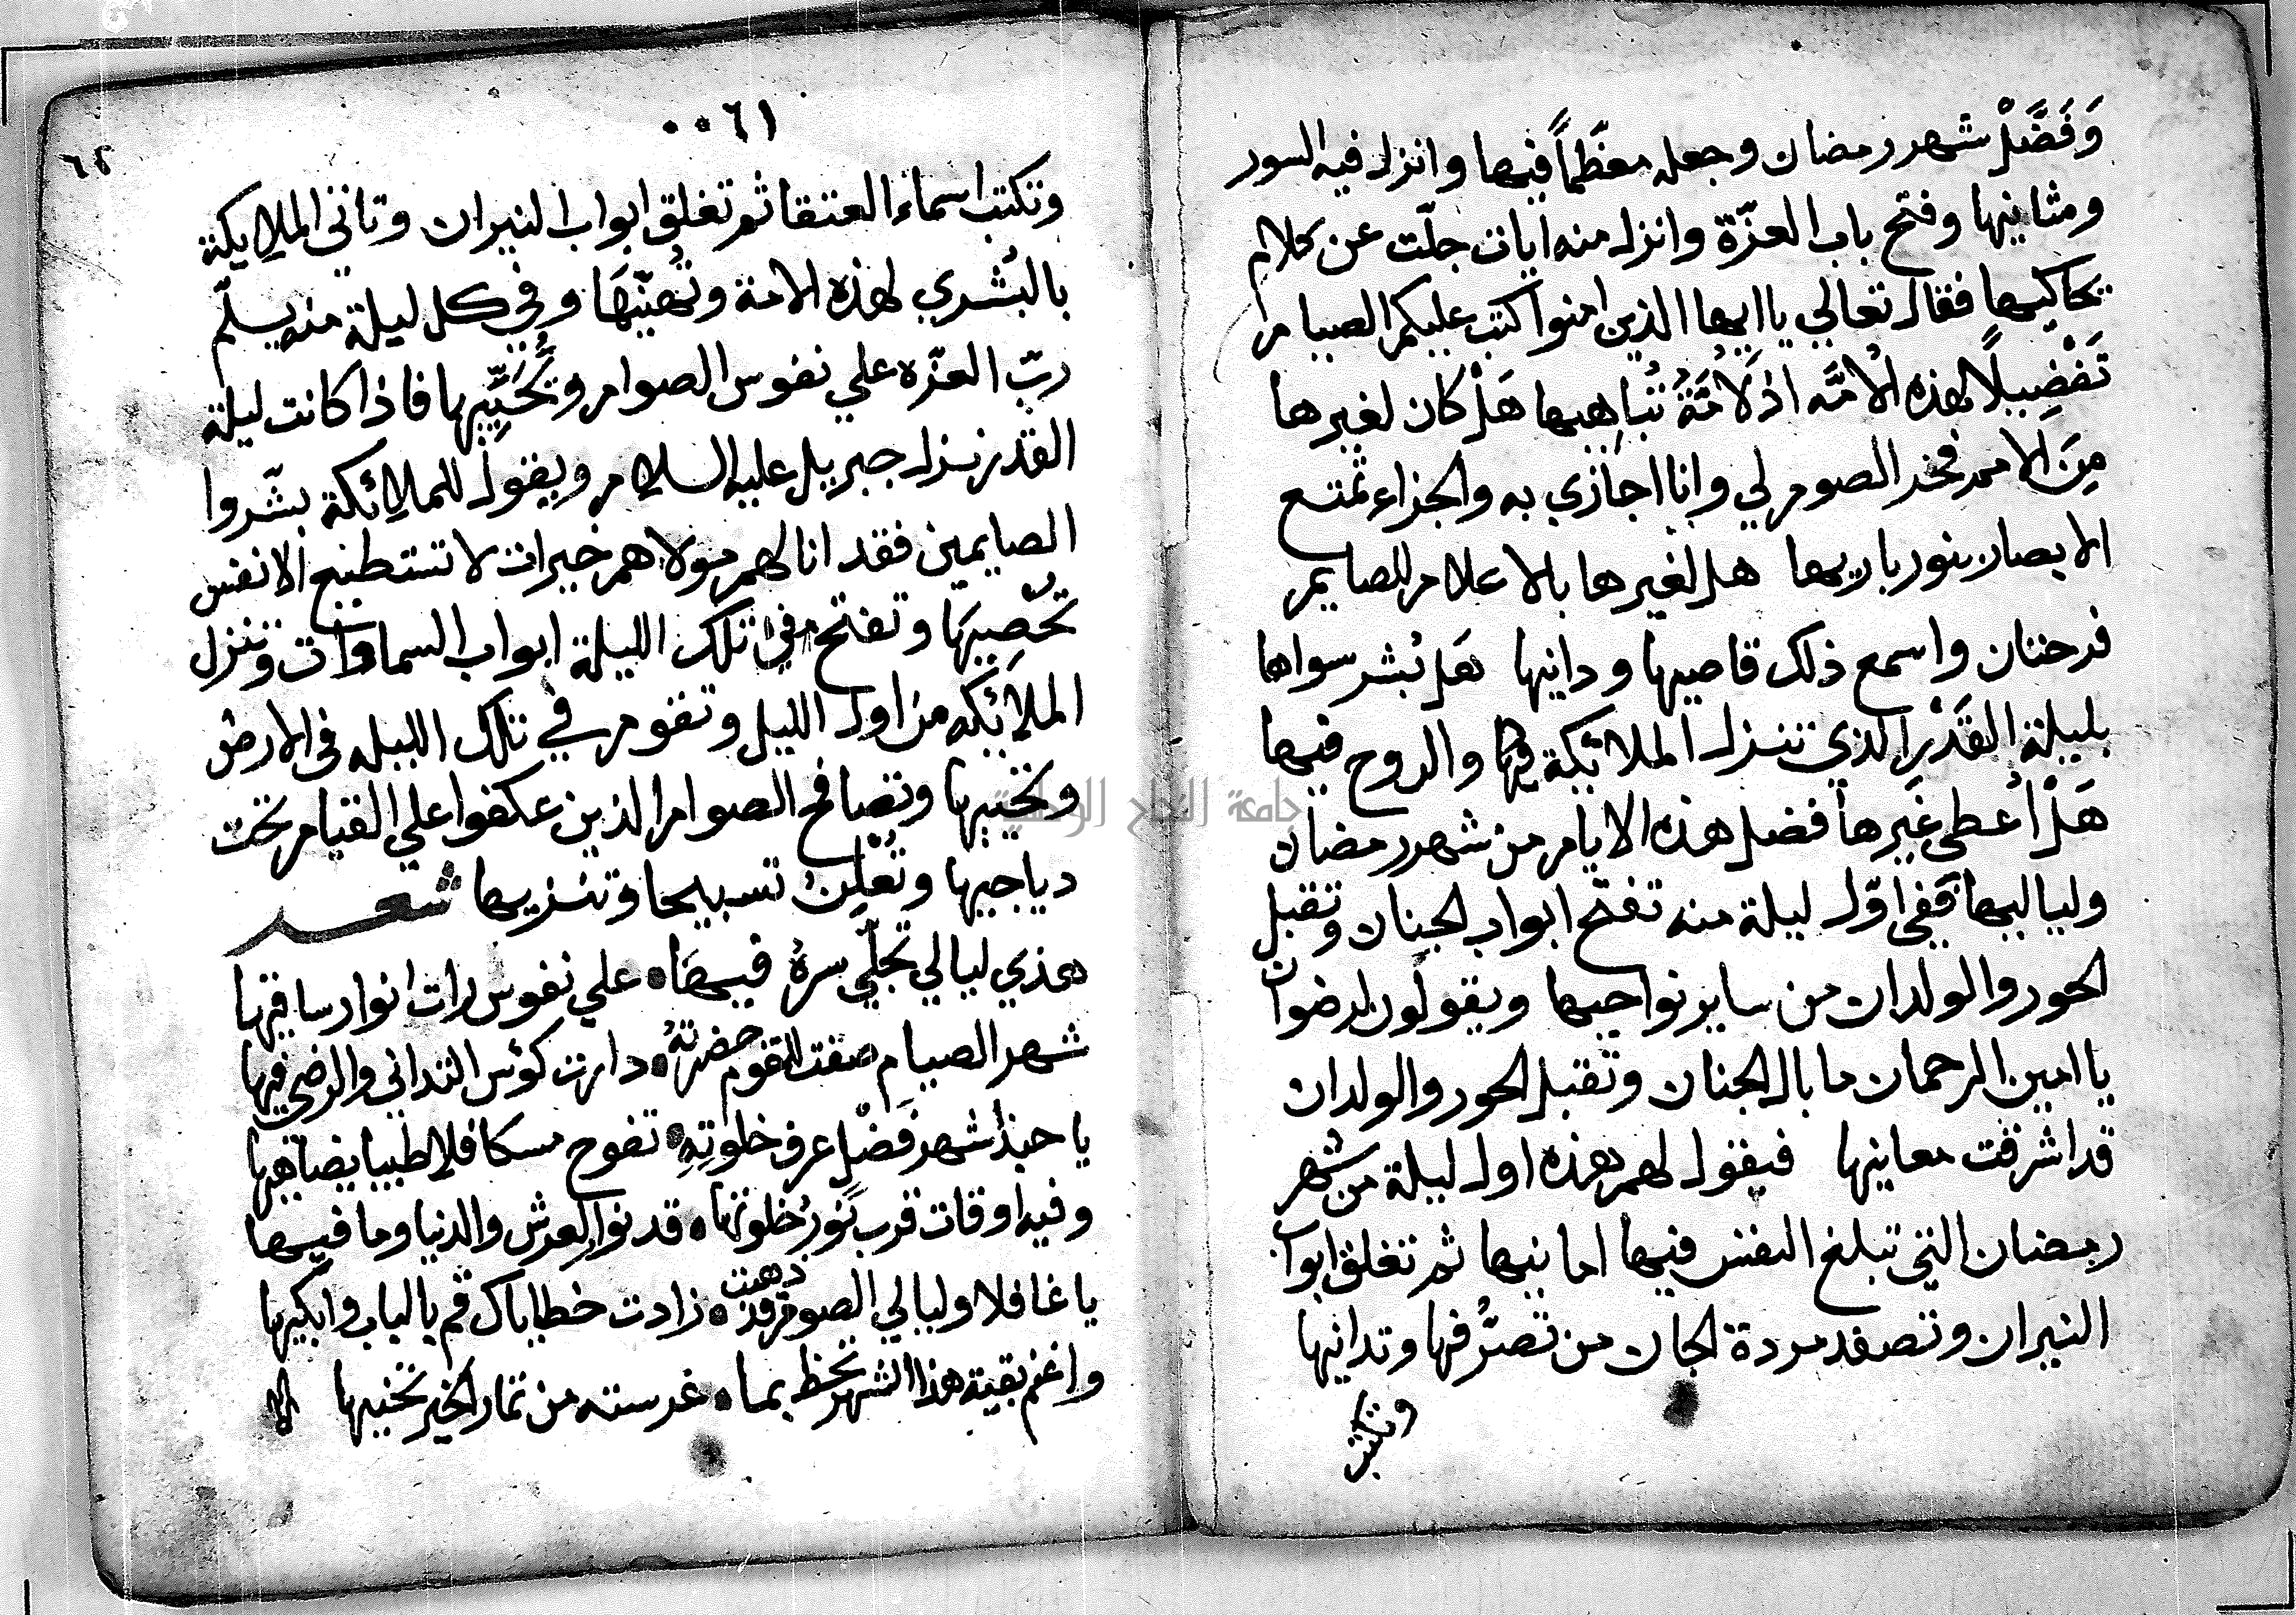 وَفَضَّلْ شهر رمضان وجعله معَظماً فيها وانزل فيه السور
ومثانيها وفتح باب العزّة وانزل منه ايات جلّت عن كلام
يحاكيها فقال تعالي ياايها الذين امنوا كتب عليكم الصيام
تَفْضِيلاً لهذه الأمَّه اذ لأمَّةُ نُباهيها هَلْ كان لغيرها
مِنَ الامم فخر الصوم لي وانا اجازي به والجزاء تمتع
الابصار بنور باريها هل لغيرها بالاعلام للصايم
فرحتان واسمع ذلك قاصيها ودانيها هَل بُشر سواها
بليلة القَدْرِ الذي تنزل الملائكة فيها والروح فيها
هَلْ أعطي غيرها فضل هذه الايام من شهر رمضان
ولياليها ففي اوّل ليلة منه تفتح ابواب الجنان وتقبل
الحور والولدان من ساير نواحيها ويقولون لرضوان
ياامين الرحمان ما بال الجنان وتقبل الحور والولدان
قد اشرقت معانيها فيقول لهم هذه اول ليلة من شهر
رمضان التي تبلغ النفس فيها امانيها ثم تغلق ابواب
النيران وتصفد مردة الجان من تصرُّفها وتدانيها
وتكتب
٠٠٦١
٦٢
وتكتب اسماء العتقا ثم تغلق ابواب النيران وتاتي الملايكة
بالبُشري لهذه الامة وتُهنّيهَا وفي كل ليلة منه يسلّم
ربّ العزّه علي نفوس الصوام ويُحَيِّيها فاذا كانت ليلة
القدر نزل جبريل عليه السلام ويقول للملائكة بشّروا
الصايمين فقد انالهم مولاهم خيرات لا تستطيع الانفس
تحْصِيهَا وتفتح في تلك الليلة ابواب السماوات وتنزل
الملائكه من اول الليل وتقوم في تلك الليله في الارض
وتحييها وتصافح الصوام الذين عكفوا علي القيام تحت
دياجيها وتُعْلِن تسبيحا وتنزيها شعر
هذي ليالي تجلّي سرهُ فيهَا علي نفوس رات انوار ساقيها
شهر الصيام صفت للقوم حضرتهُ دارت كؤس التداني والرضي فيها
ياحبذا شهر فَضْل عرف خلوتِهِ تفوح مسكا فلا طيبا يضاهيها
وفيه اوقات قرب نَورُ خلوتها قد نوّر العرش والدنيا وما فيها
ياغافلا وليالي الصوم قد ذهبت زادت خطاياك قم بالباب وابكيها
واغنم بقية هذا الشهر تحظ بما غرسته من ثمار الخير تجنيها
جامعة النجاح الوطنية